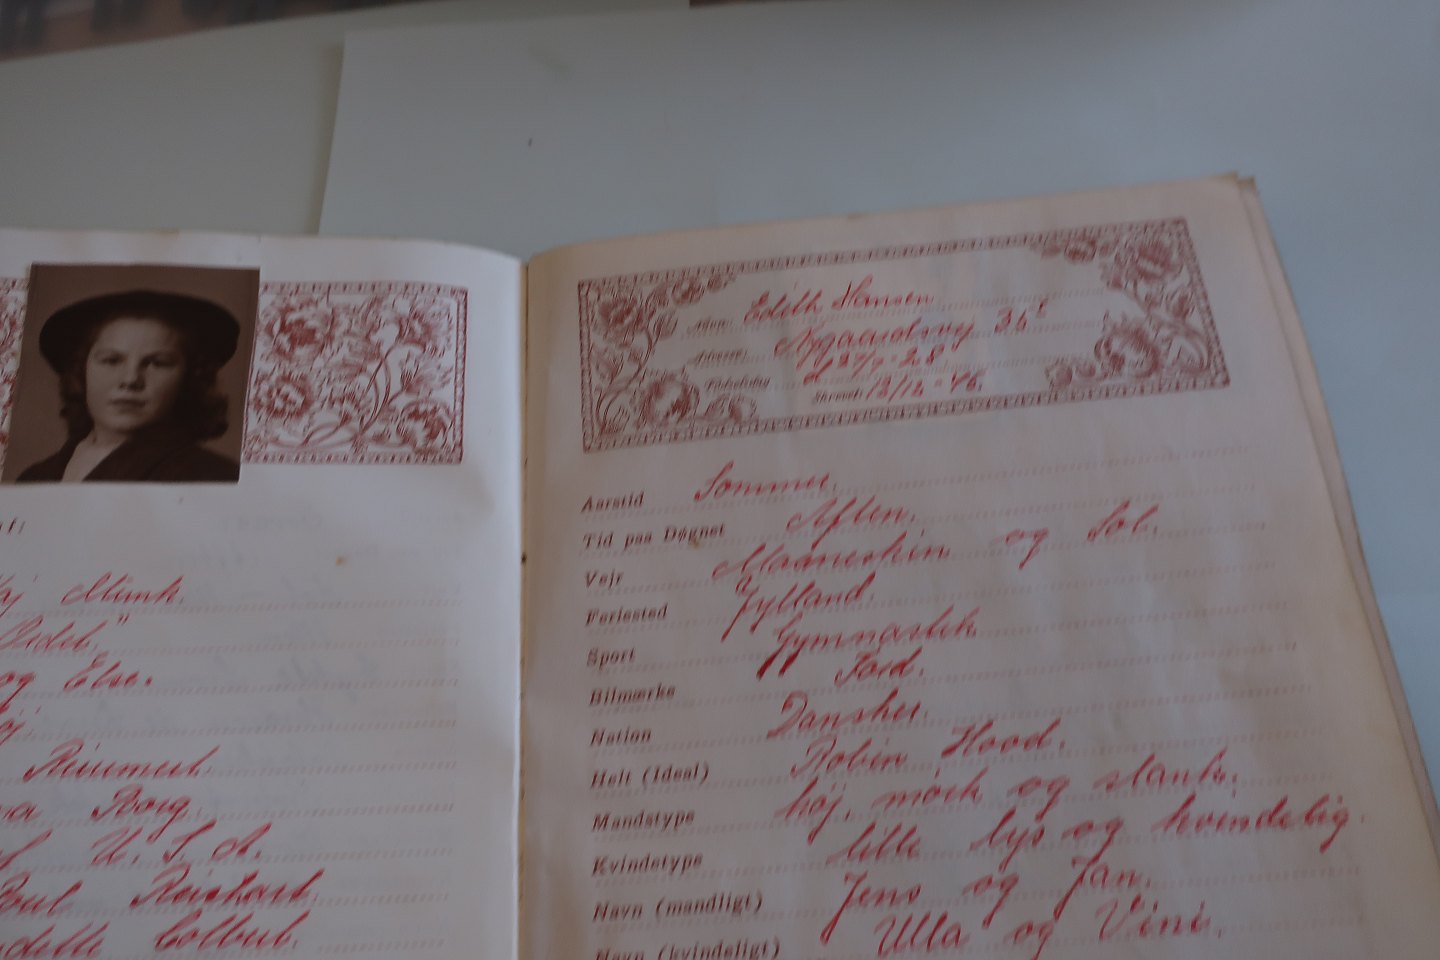 af:
Mimk.
og Else.
Borg.
U.S.A.
Poul Reichart.
Colbert.
Navn: Edith Hansen
Adresse: Nygaardsvej 36²
Fødselsdag d. 8/9-28
Skrevet: 13/12-46.
Aarstid Sommer.
Tid paa Døgnet Aften.
Vejr Maaneskin og Sol.
Feriested Jylland.
Sport Gymnastik
Bilmærke Ford.
Nation Dansker.
Helt (Ideal) Robin Hood.
Mandstype høj, mørk og slank.
Kvindetype lille lys og kvindelig.
Navn (mandligt) Jens og Jan.
Navn (kvindeligt) Ulla og Vini.